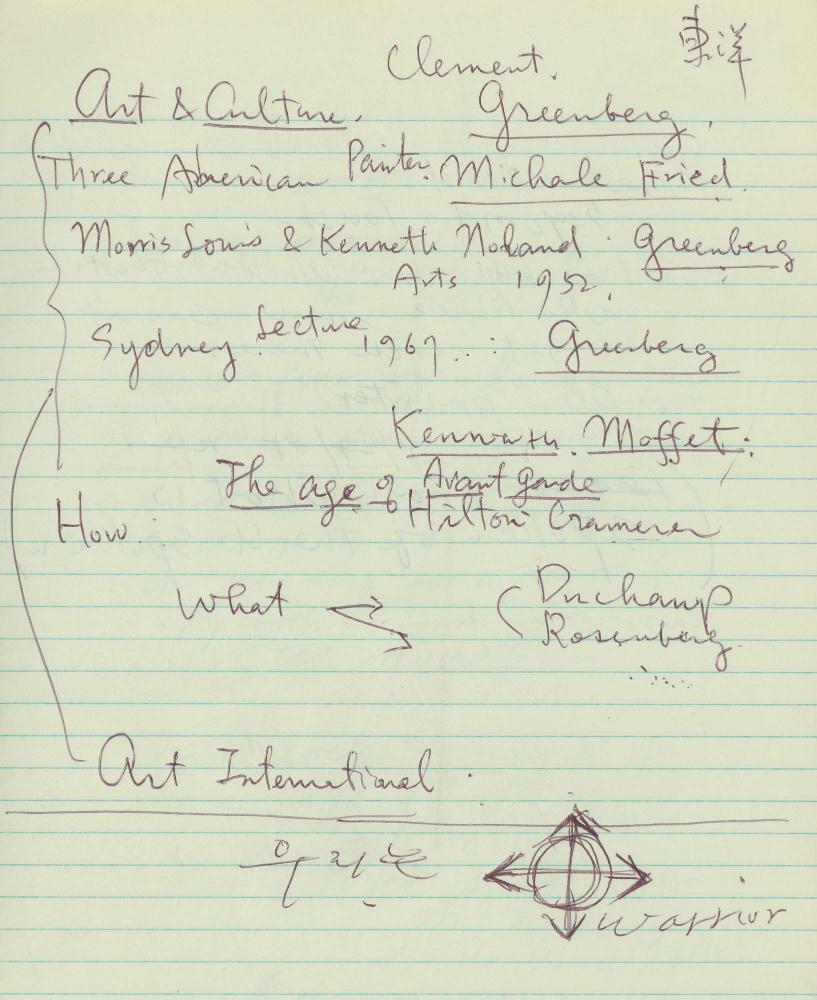 東洋
Clement.
Art & Culture. Greenberg.
Three American Painter. Michale Fried.
Morris Louis & Kenneth Noland. Greenberg
Arts 1952.
Sydney Lecture 1967..: Greenberg
Moffet.
The age of Avant garde
How Hilton Cramerer
What Duchamp
Rosenberg
.....
Art International.
우리는
warrior